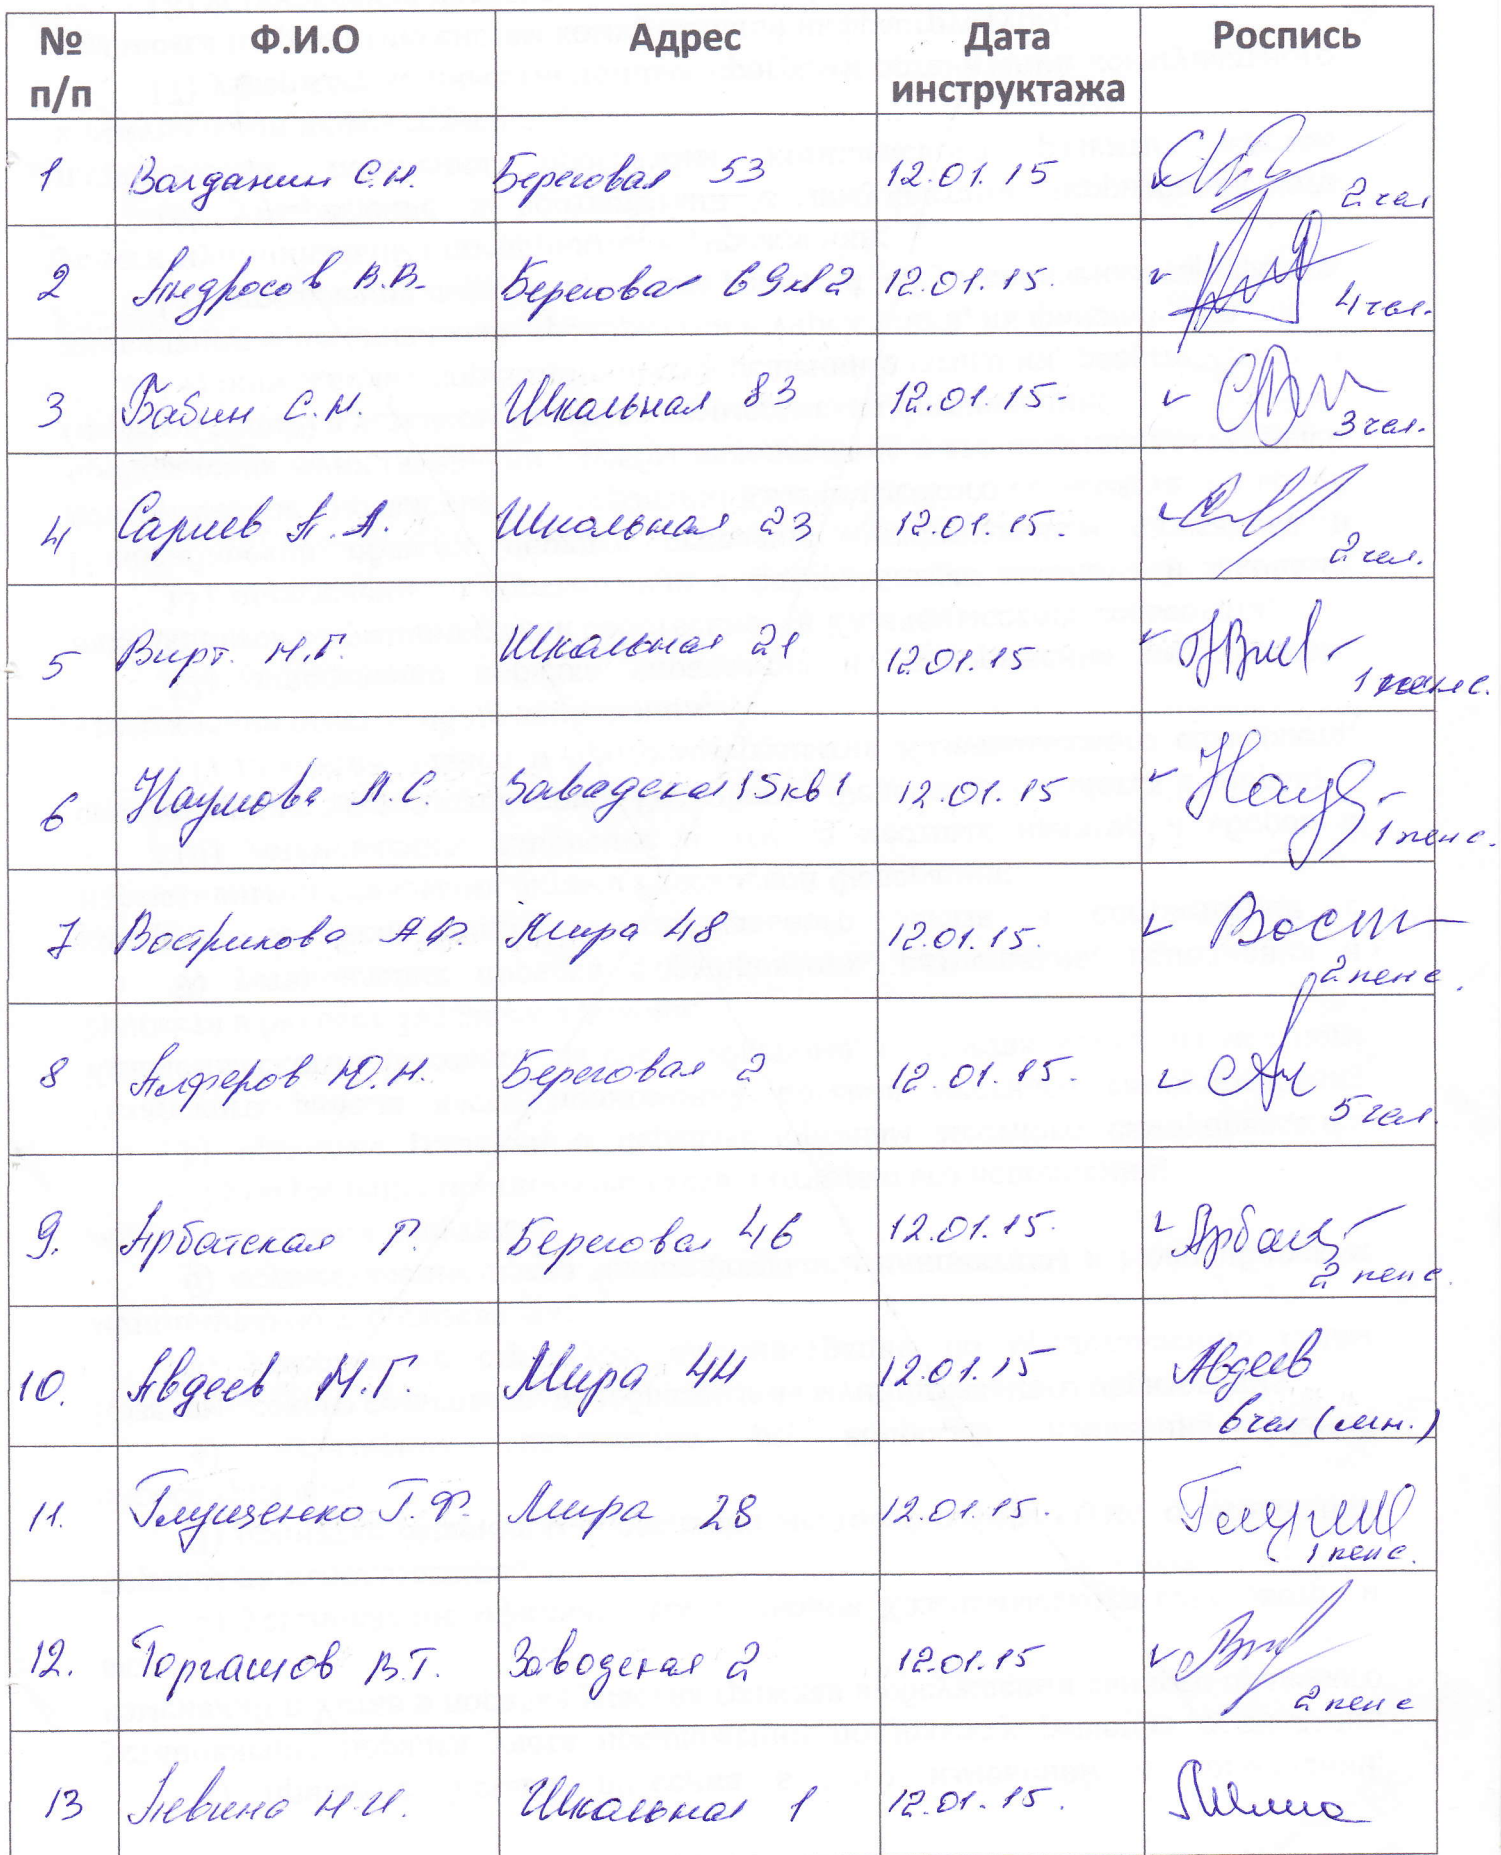 № п/п Ф.И.О Адрес Дата инструктажа Роспись
1 Волданин С.Н. Береговая 53 12.01.15 2 чел
2 Андросов В.В. Береговая 69 кв 2 12.01.15. 4 чел.
3 Бабин С.Н. Школьная 83 12.01.15- 3 чел.
4 Сариев А.А. Школьная 23 12.01.15. 2 чел.
5 Вирт. Н.Г. Школьная 21 12.01.15 1 пенс.
6 Наумова Л.С. Заводская 15 кв 1 12.01.15 1 пенс.
7 Вострикова А.Ф. Мира 48 12.01.15. 2 пенс.
8 Алферов Ю.Н. Береговая 2 12.01.15. 5 чел.
9. Арбатская Г. Береговая 46 12.01.15. 2 пенс.
10. Авдеев М.Г. Мира 44 12.01.15 Авдеев 6 чел (мн.)
11. Глущенко Г.Ф. Мира 28 12.01.15. 1 пенс.
12. Торгашов В.Т. Заводская 2 12.01.15 2 пенс
13 Левина Н.И. Школьная 1 12.01.15.